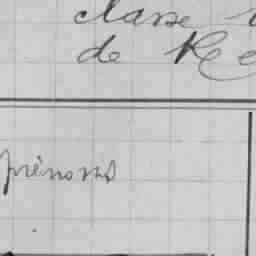 classe
de
prénoms